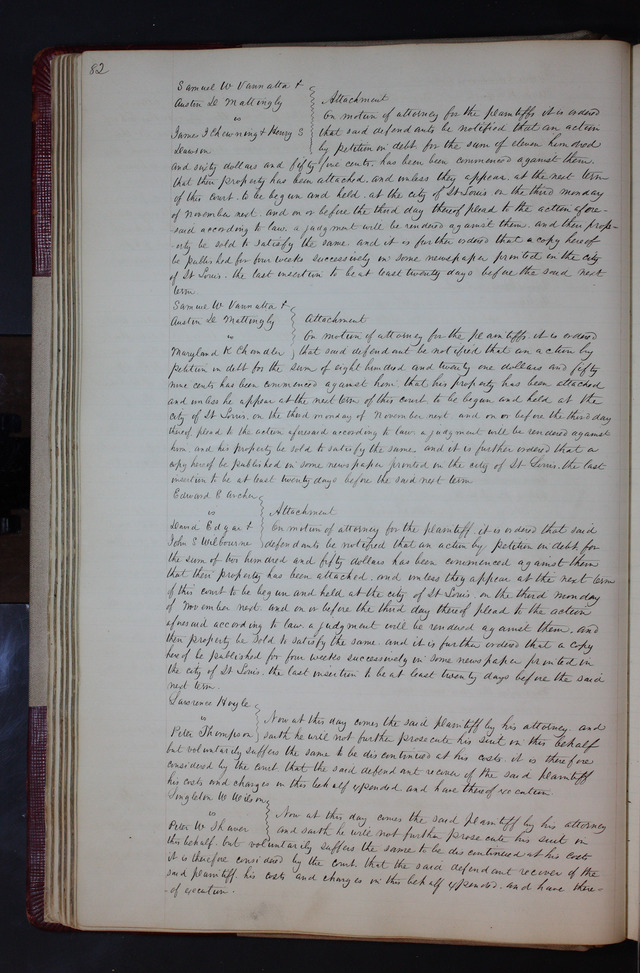 82
Samuel W Vannatta &
Austin D Mattingly
vs
James J Chewning & Henry S
Dawson
Attachment
On motion of attorney for the plaintiffs it is ordered
that said defendants be notified that an action
by petition in debt for the sum of eleven hundred
and sixty dollars and fifty five cents, has been commenced against them
that their property has been attached, and unless they appear at the next term
of this court to be begun and held at the city of St Louis on the third monday
of November next and on or before the third day thereof plead to the action afore-
said according to law a judgment will be rendered against them and their prope-
rty be sold to satisfy the same and it is further ordered that a copy hereof
be published for four weeks successively in some newspaper printed in the city
of St Louis, the last insertion to be at least twenty days before the said next
term
Samuel W Vannatta &
Austin D Mattingly
vs
Maryland K Chandler
Attachment
On motion of attorney for the plaintiffs it is ordered
that said defendant be notified that an action by
petition in debt for the sum of eight hundred and twenty one dollars and fifty
nine cents has been commenced against him that his property has been attached
and unless he appear at the next term of this court to be begun and held at the
city of St Louis on the third monday of November next and on or before the third day
thereof plead to the action aforesaid according to law a judgment will be rendered against
him and his property be sold to satisfy the same and it is further ordered that a
copy hereof be published in some newspaper printed in the city of St Louis, the last
insertion to be at least twenty days before the said next term
Edward
vs
David Edgar &
John S Wilbourne
Attachment
On motion of attorney for the plaintiff it is ordered that said
defendants be notified that an action by petition in debt for
the sum of two hundred and fifty dollars has been commenced against them
that their property has been attached, and unless they appear at the next term
of this court to be begun and held at the city of St Louis on the third monday
of November next and on or before the third day thereof plead to the action
aforesaid according to law a judgment will be rendered against them, and
their property be sold to satisfy the same and it is further ordered that a copy
hereof be published for four weeks successively in some newspaper printed in
the city of St Louis, the last insertion to be at least twenty days before the said
next term
Lawrence Hoyle
vs
Peter Thompson
Now at this day comes the said plaintiff by his attorney and
saith he will not further prosecute his suit on this behalf
but voluntarily suffers the same to be discontinued at his costs it is therefore
considered by the court that the said defendant recover of the said plaintiff
his costs and charges in this behalf expended and have thereof execution
Singleton W Wilson
vs
Peter W Shaver
Now at this day comes the said plaintiff by his attorney
and saith he will not further prosecute his suit in
this behalf but voluntarily suffers the same to be discontinued at his costs
it is therefore considered by the court that the said defendant recover of the
said plaintiff his costs and charges in this behalf expended and have there-
of execution.